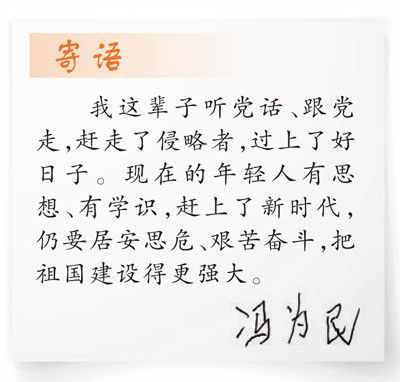 寄语
我这辈子听党话、跟党
走,赶走了侵略者,过上了好
日子。现在的年轻人有思
想、有学识,赶上了新时代,
仍要居安思危、艰苦奋斗,把
祖国建设得更强大。
冯为民